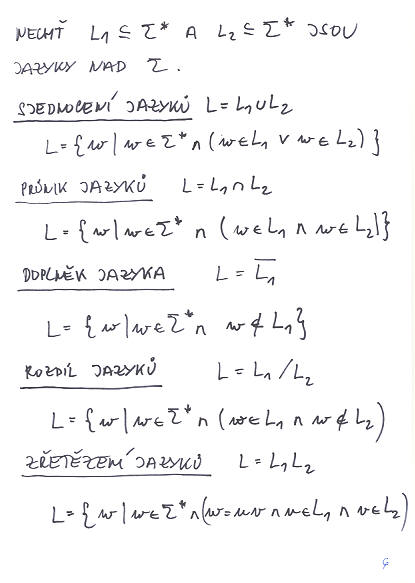 NECHŤ L1 ⊆ Σ* A L2 ⊆ Σ* JSOU
JAZYKY NAD Σ.
SJEDNOCENÍ JAZYKŮ L = L1 ∪ L2
L = { w | w ∈ Σ* ∧ ( w ∈ L1 ∨ w ∈ L2 ) }
PRŮNIK JAZYKŮ L = L1 ∩ L2
L = { w | w ∈ Σ* ∧ ( w ∈ L1 ∧ w ∈ L2 ) }
DOPLNĚK JAZYKA L = L̅1
L = { w | w ∈ Σ* ∧ w ∉ L1 }
ROZDÍL JAZYKŮ L = L1 / L2
L = { w | w ∈ Σ* ∧ ( w ∈ L1 ∧ w ∉ L2 )
ZŘETĚZENÍ JAZYKŮ L = L1L2
L = { w | w ∈ Σ* ∧ ( w = uv ∧ u ∈ L1 ∧ v ∈ L2 ) }